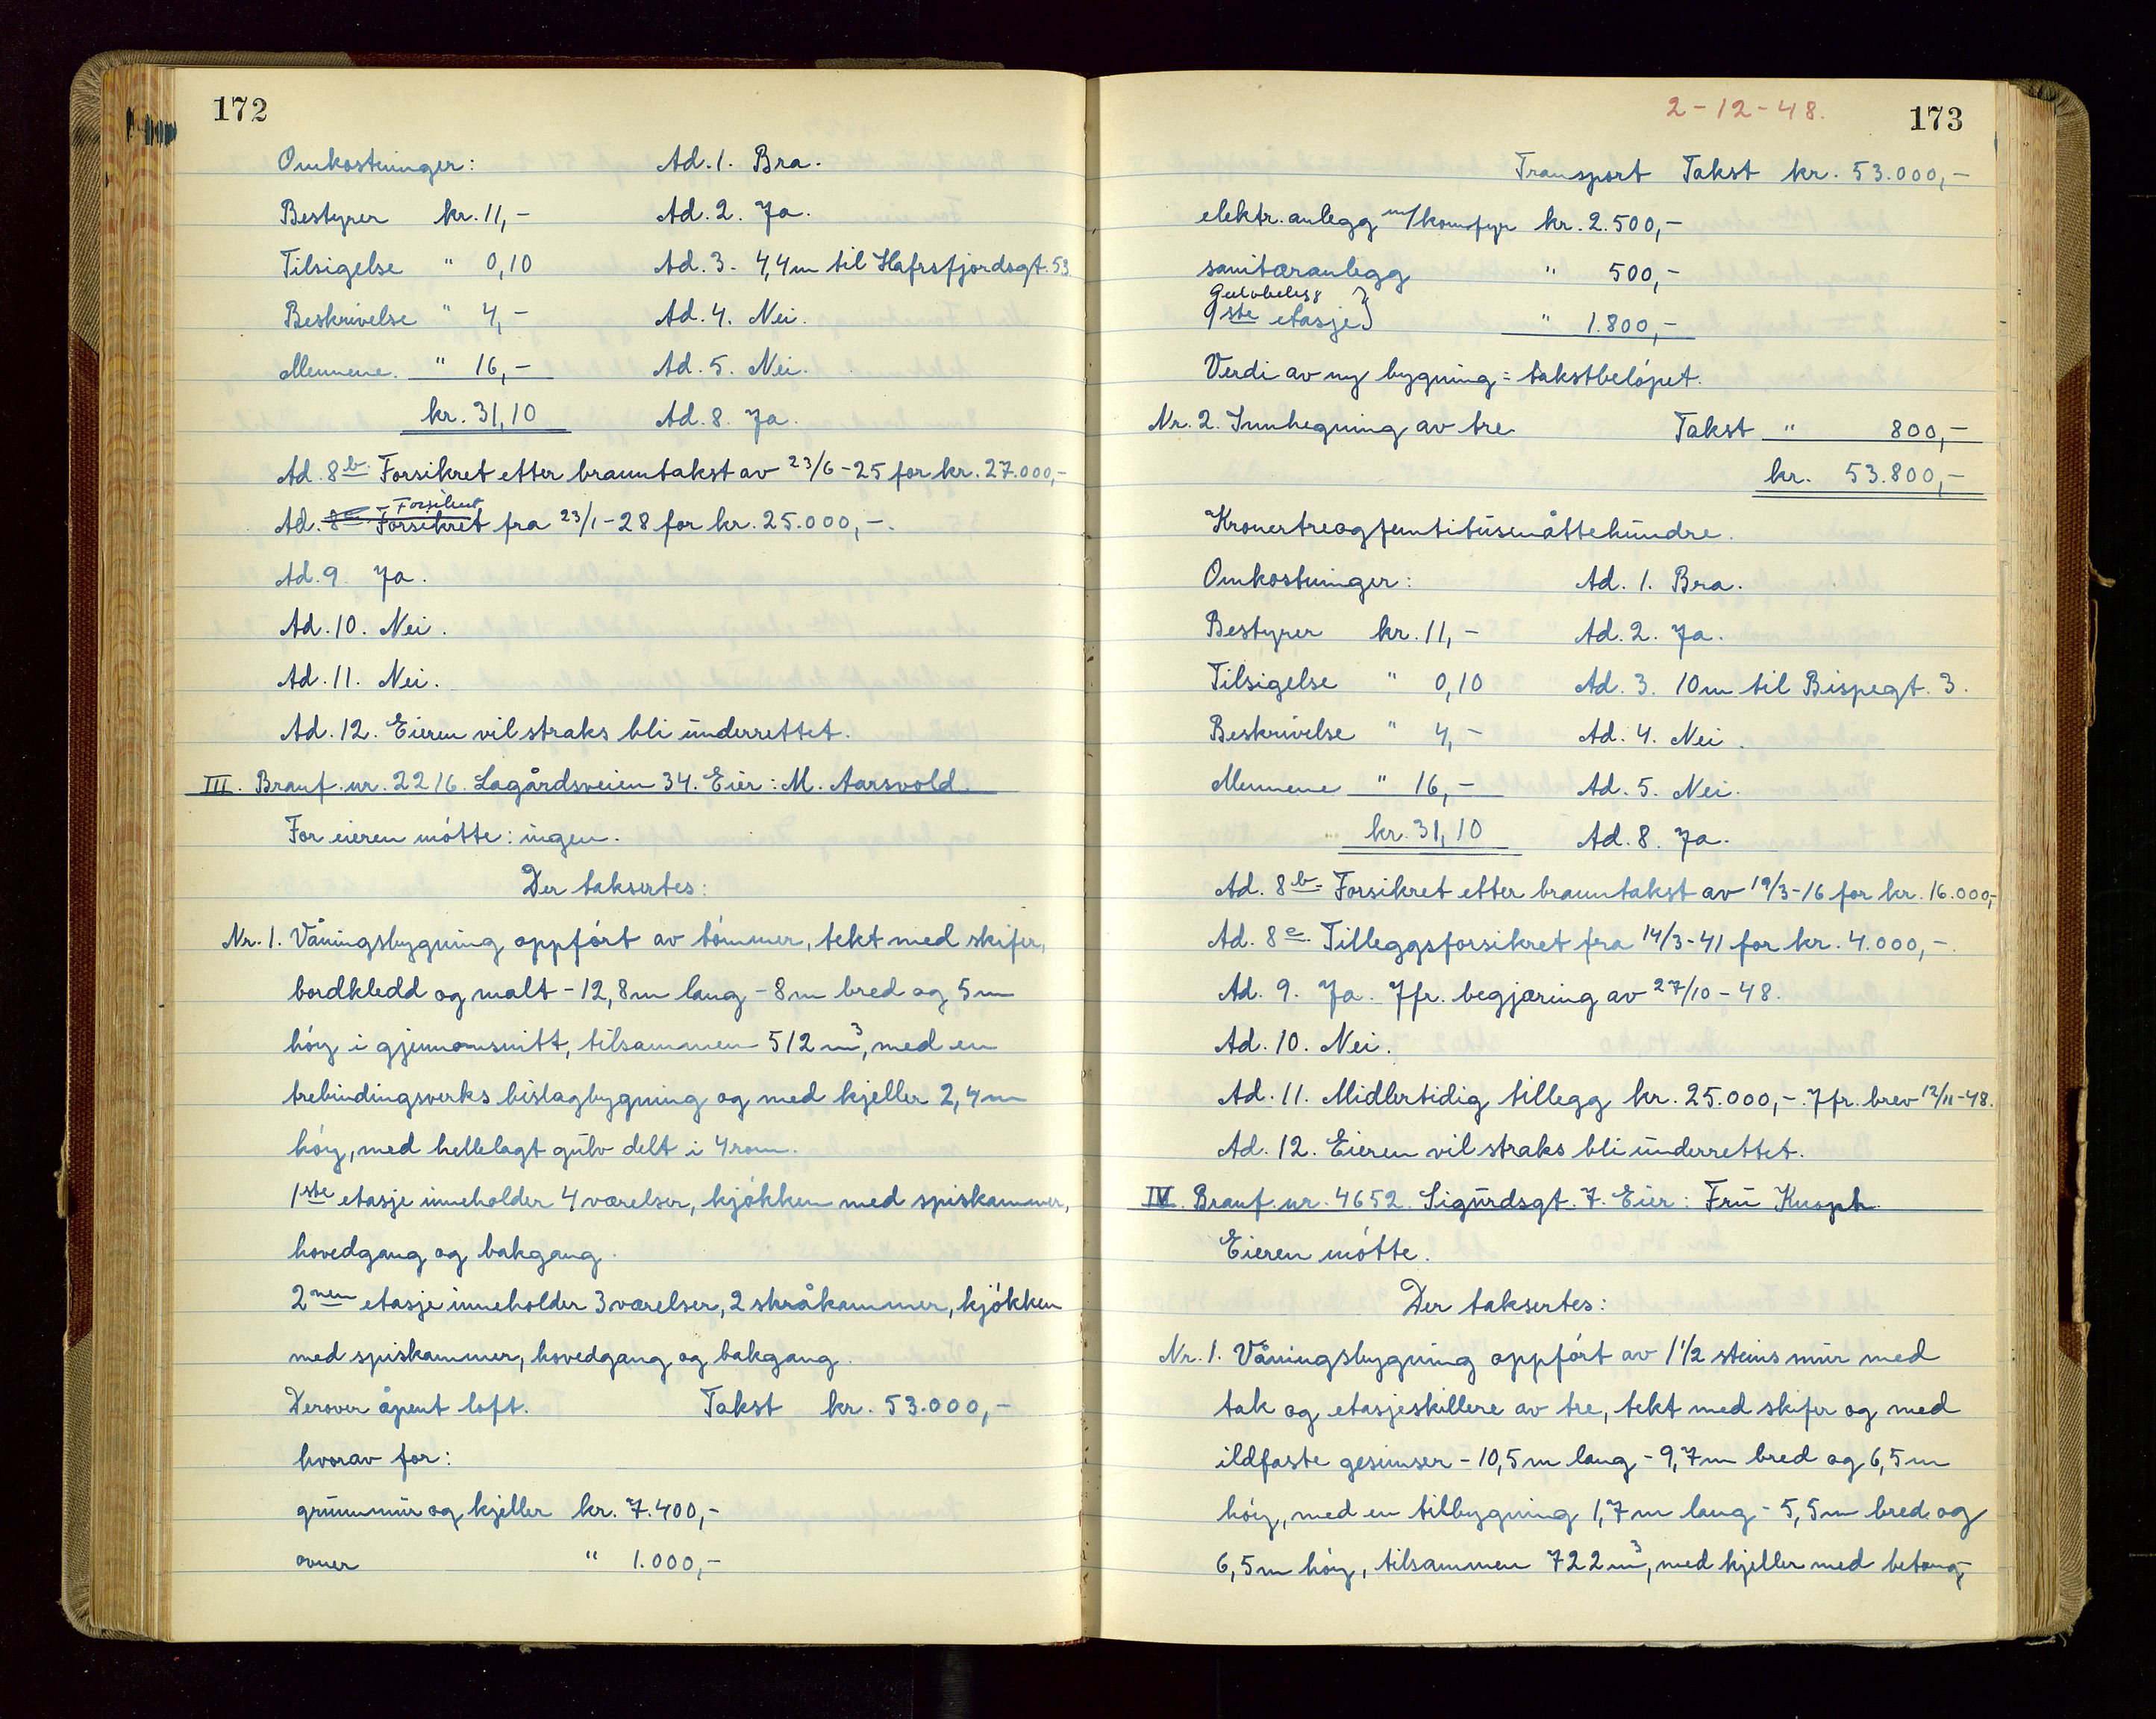 172
Omkostninger: Ad. 1. Bra.
Bestyrer kr. 11,- Ad. 2. Ja.
Tilsigelse " 0,10 Ad. 3. 4,4m til Hafrsfjordsgt. 53
Beskrivelse " 4,- Ad. 4. Nei.
Mennene. " 16,- Ad. 5. Nei.
kr. 31,10 Ad. 8. Ja.
Ad. 8b. Forsikret etter branntakst av 23/6-25 for kr. 27.000,-
Forsikret
Ad. Forsikret fra 23/1-28 for kr. 25.000,-.
Ad. 9. Ja.
Ad. 10. Nei.
Ad. 11. Nei.
Ad. 12. Eieren vil straks bli underrettet.
III. Branf. nr. 2216. Lagårdsveien 34. Eier: M. Aarsvold.
For eieren møtte: ingen.
Der taksertes:
Nr. 1. Våningsbygning oppført av tømmer, tekt med skifer,
bordkledd og malt - 12,8m lang - 8m bred og 5m
høy i gjennomsnitt, tilsammen 512 m3, med en
trebindingsverks bislagbygning og med kjeller 2,4m
høy, med hellelagt gulv delt i 4 rom.
1ste etasje inneholder 4 værelser, kjøkken med spiskammer,
hovedgang og bakgang.
2nen etasje inneholder 3 værelser, 2 skråkammer, kjøkken
med spiskammer, hovedgang og bakgang.
Derover åpent loft. Takst kr. 53.000,-
hvorav for:
grunnmur og kjeller kr. 7.400,-
ovner " 1.000,-
2-12-48. 173
Transport Takst kr. 53.000,-
elektr. anlegg m/komfyr kr. 2.500,-
sanitæranlegg " 500,-
etasje} " 1.800,-
Verdi av ny bygning = takstbeløpet.
Nr. 2. Innhegning av tre Takst " 800,-
kr. 53.800,-
Kronertreogfemtitusenåttehundre.
Omkostninger: Ad. 1. Bra.
Bestyrer kr. 11,- Ad. 2. Ja.
Tilsigelse " 0,10 Ad. 3. 10m til Bispegt. 3.
Beskrivelse " 4,- Ad. 4. Nei.
Mennene " 16,- Ad. 5. Nei.
kr. 31,10 Ad. 8. Ja.
Ad. 8b. Forsikret etter branntakst av 19/3-16 for kr. 16.000,-
Ad. 8e. Tilleggsforsikret fra 14/3-41 for kr. 4.000,-.
Ad. 9. Ja. Jfr. begjæring av 27/10-48.
Ad. 10. Nei.
Ad. 11. Midlertidig tillegg kr. 25.000,-. Jfr. brev 12/11-48.
Ad. 12. Eieren vil straks bli underrettet.
IV. Branf. nr. 4652. Sigurdsgt. 7. Eier: Fru Knoph.
Eieren møtte.
Der taksertes:
Nr. 1. Våningsbygning oppført av 1 1/2 steins mur med
tak og etasjeskillere av tre, tekt med skifer og med
ildfaste gesimser - 10,5m lang - 9,7m bred og 6,5m
høy, med en tilbygning 1,7m lang - 5,5m bred og
6,5m høy, tilsammen 722 m3, med kjeller med betong-